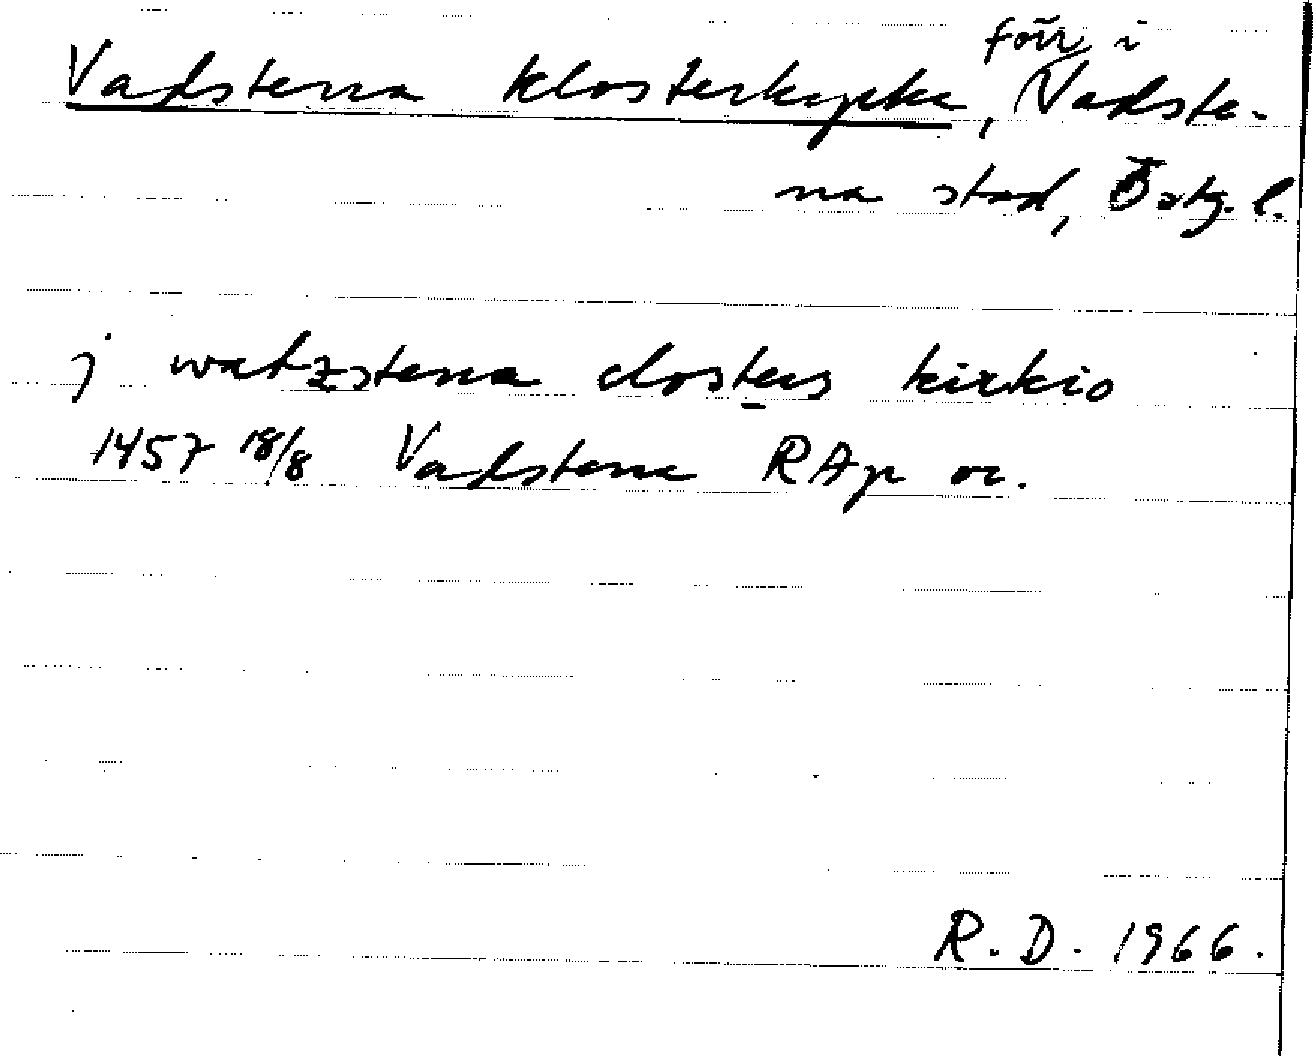 Vadstena klosterkyrka, förr i Vadste-
na stad, Östg. l.
j watzstena closters kirkio
1457 18/8 Vadstena RAp or.
R. D. 1966.